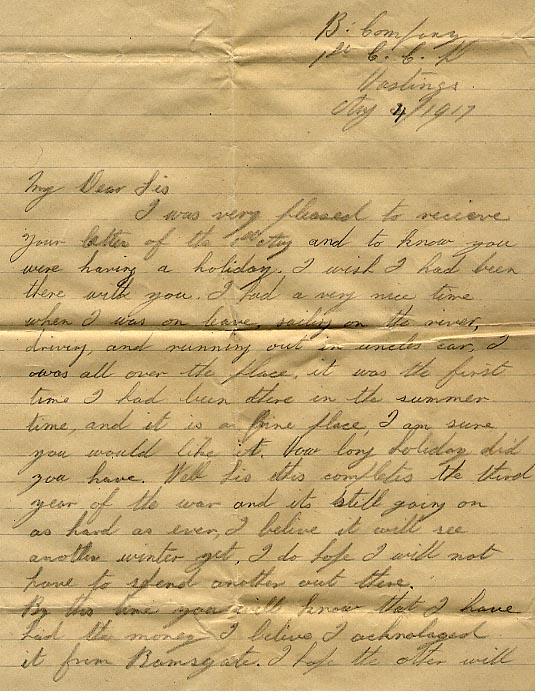 B. Company
1st C. C. D
Hastings
Aug 4/1917
My Dear Sis
I was very pleased to recieve
your letter of the 1st Aug and to know you
were having a holiday. I wish I had been
there with you. I had a very nice time
when I was on leave, sailing on the river,
driving, and running out in uncles car, I
was all over the place, it was the first
time I had been there in the summer
time, and it is a fine place, I am sure
you would like it. How long holiday did
you have. Well Sis this completes the third
year of the war and its still going on
as hard as ever, I belive it will see
another winter yet, I do hope I will not
have to spend another out there.
By this time you will know that I have
had the money I belive I acknolaged
it from Ramsgate. I hope the other will